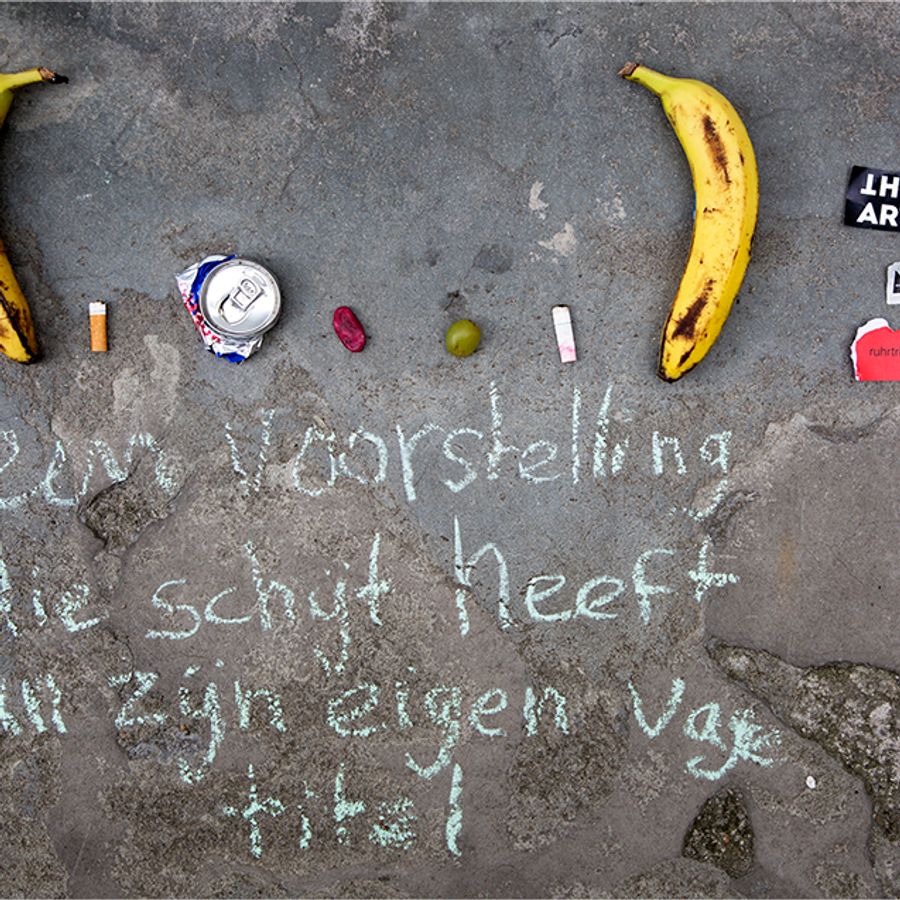 TH
AR
ruhrtri
een voorstelling
die schijt heeft
an zijn eigen vage
titel